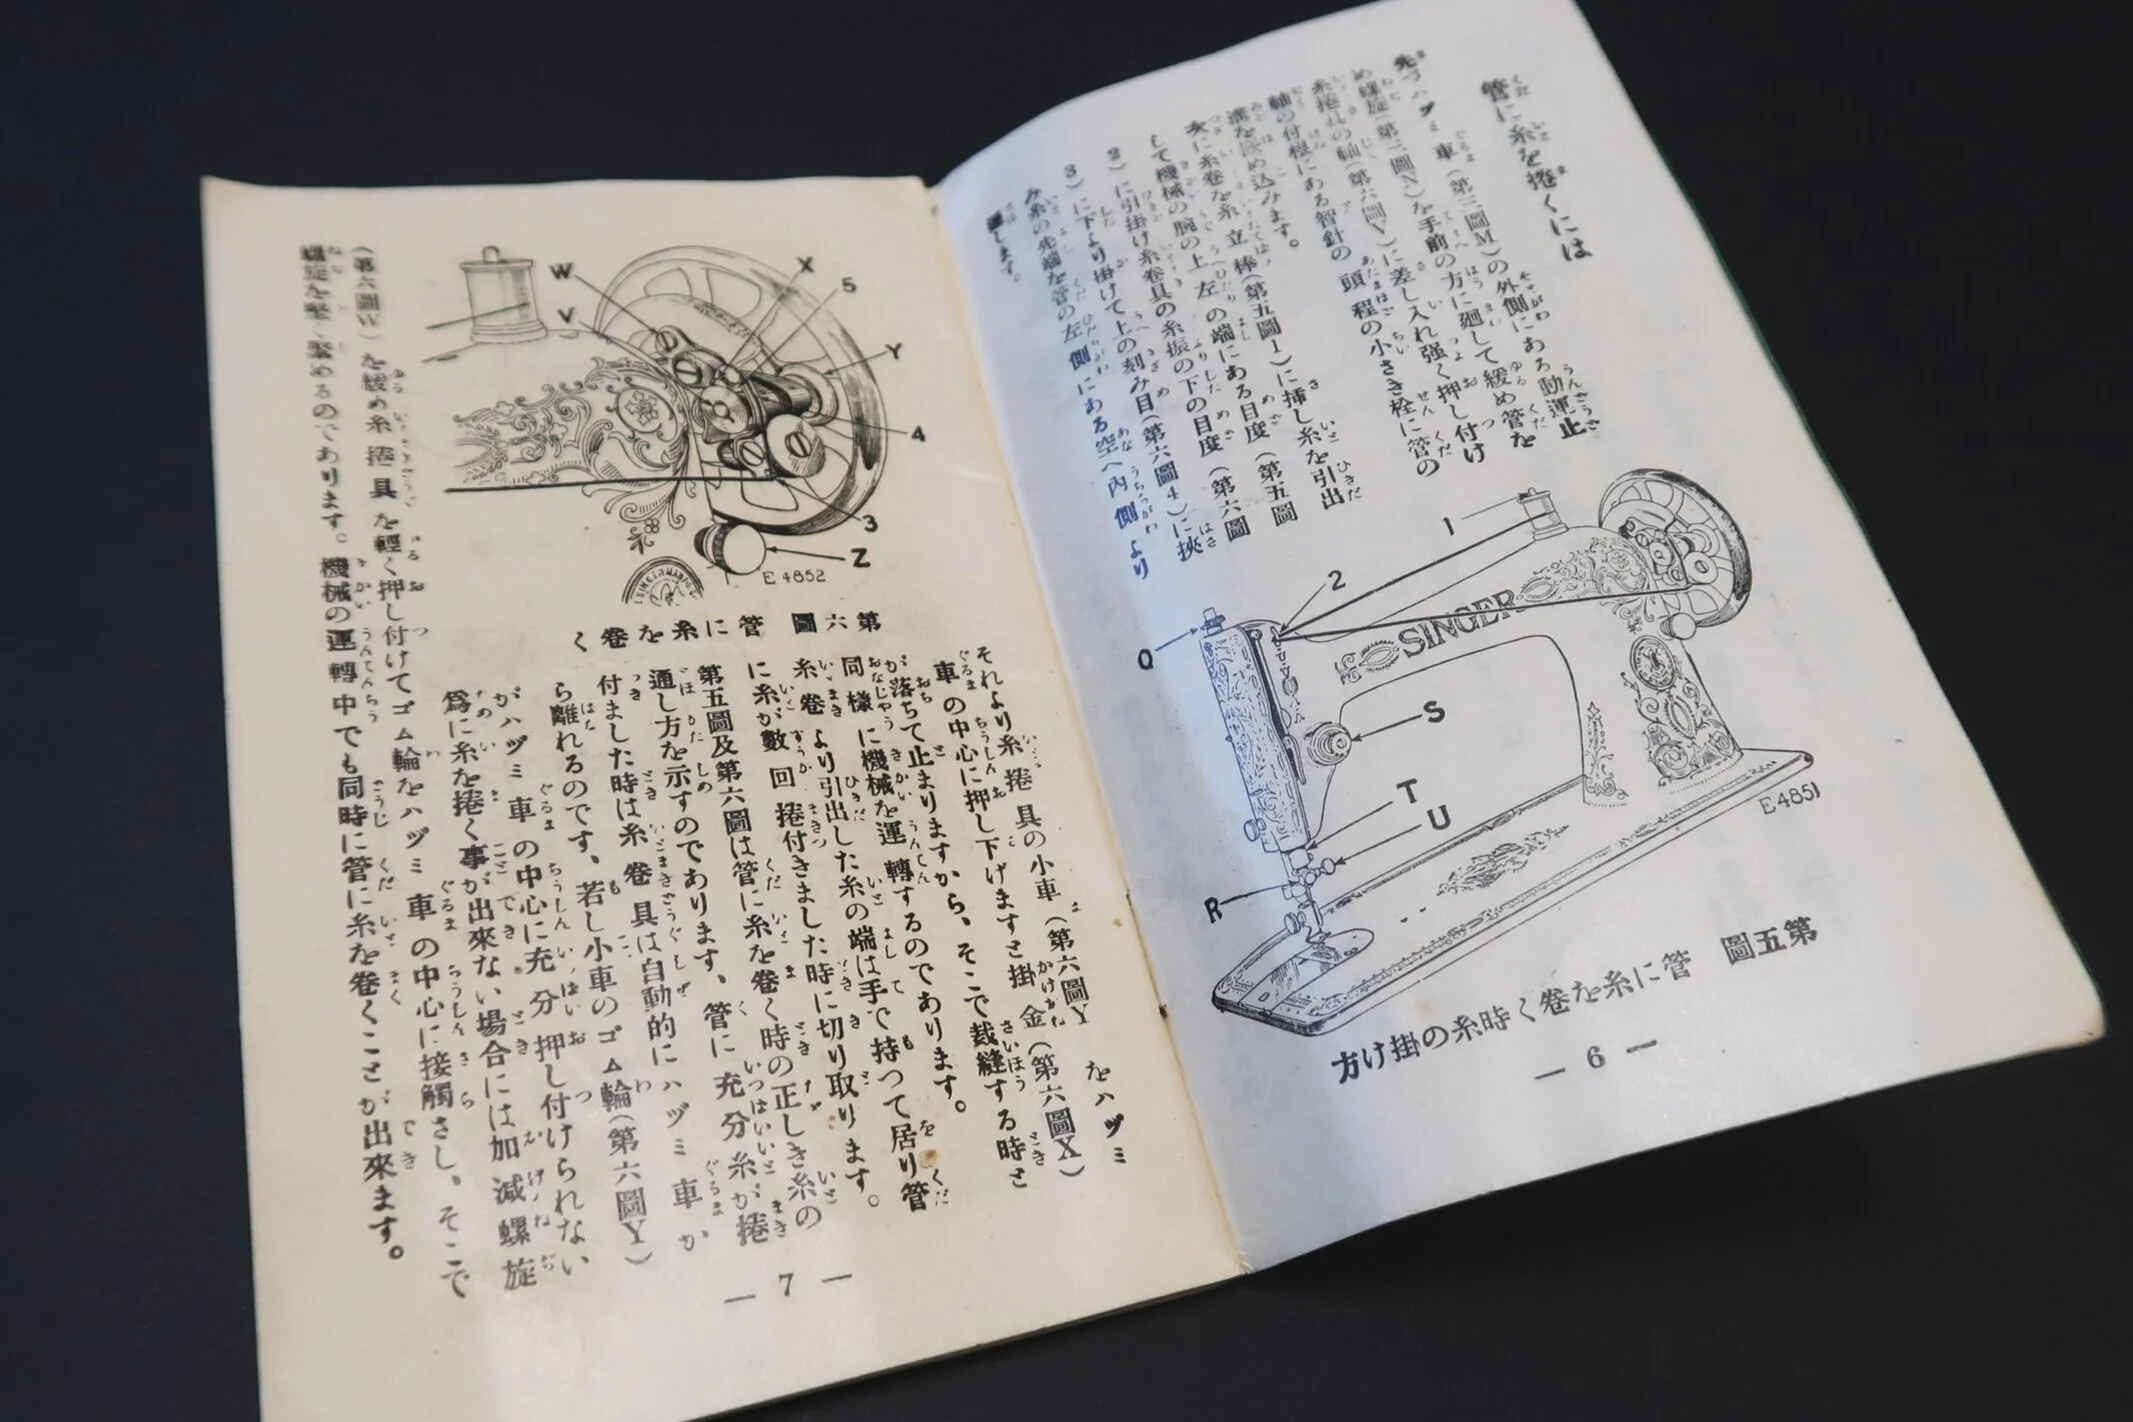 管に糸を捲くには
先づハヅミ車(第三圖M)の外側にある動運止
め螺旋(第三圖N)を手前の方に廻して緩め管を
糸捲具の軸(第六圖V)に差し入れ强く押し付け
軸の付根にある智針の頭程の小さき栓に管の
溝を嵌め込みます。
次に糸卷を糸立棒(第五圖1)に挿し糸を引出
して機械の腕の上左の端にある目度(第五圖
2)に引掛け糸卷具の糸振の下の目度(第六圖
3)に下より掛けて上の刻み目(第六圖4)に挾
み糸の先端を管の左側にある空へ內側より
通します。
1
2
Q
SINGER
S
T
U
R
E4851
第五圖 管に糸を卷く時糸の掛け方
— 6 —
W
X
5
V
Y
4
3
Z
E 4852
第六圖 管に糸を卷く
それより糸捲具の小車(第六圖Y)をハヅミ
車の中心に押し下げますと掛金(第六圖X)
が落ちて止まりますから、そこで裁縫する時と
同樣に機械を運轉するのであります。
糸卷より引出した糸の端は手で持つて居り管
に糸が數回捲付きました時に切り取ります。
第五圖及第六圖は管に糸を卷く時の正しき糸の
通し方を示すのであります、管に充分糸が捲
付ました時は糸卷具は自動的にハヅミ車か
ら離れるのです、若し小車のゴム輪(第六圖Y)
がハヅミ車の中心に充分押し付けられない
爲に糸を捲く事が出來ない場合には加減螺旋
(第六圖W)を緩め糸捲具を輕く押し付けてゴム輪をハヅミ車の中心に接觸さし、そこで
螺旋を堅く緊めるのであります。機械の運轉中でも同時に管に糸を卷くことが出來ます。
— 7 —